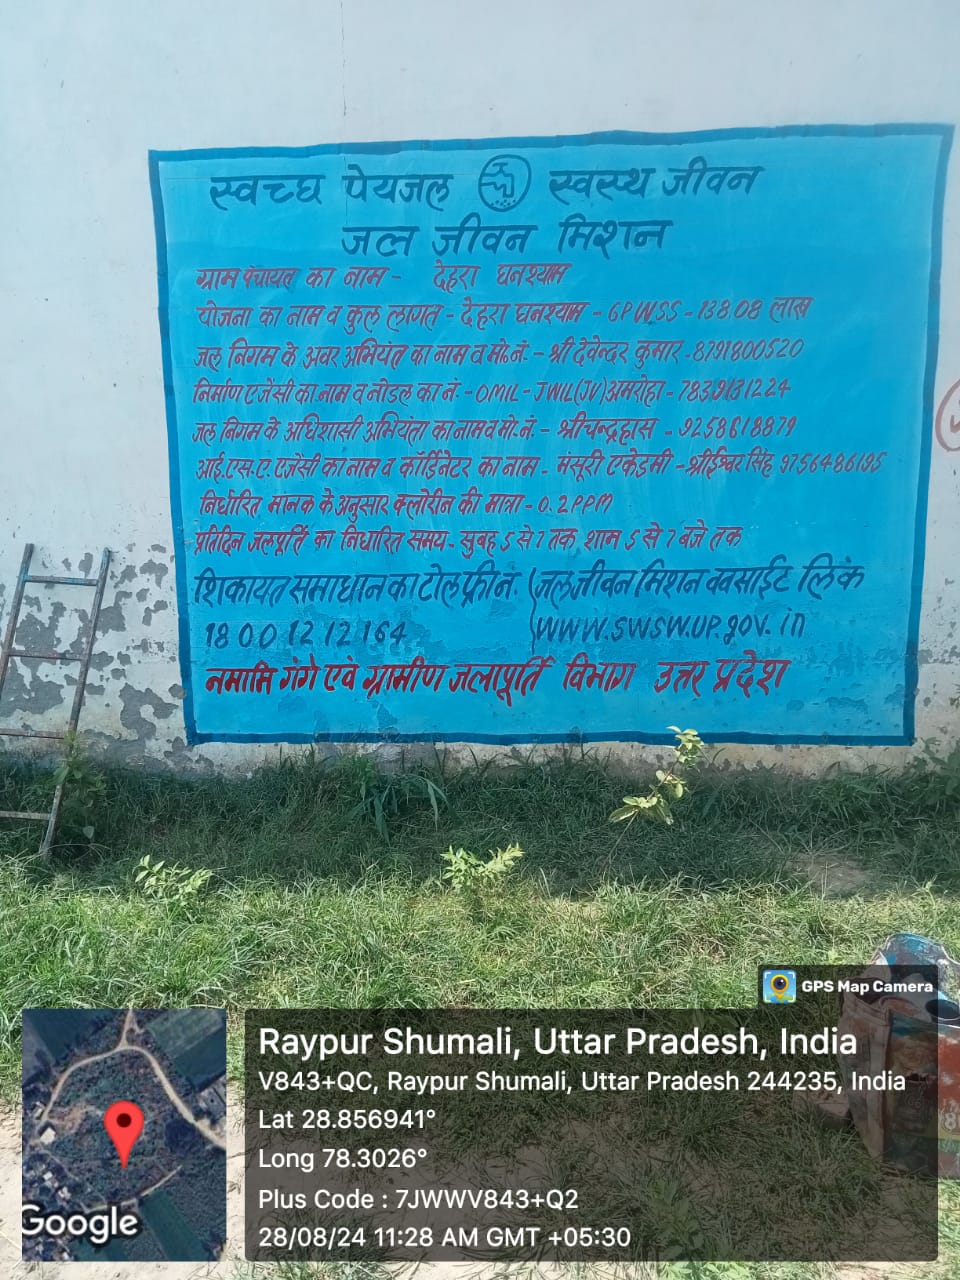 स्वच्छ पेयजल स्वस्थ जीवन
जल जीवन मिशन
ग्राम पंचायत का नाम - देहरा घनश्याम
योजना का नाम व कुल लागत - देहरा घनश्याम - GPWSS - 138.08 लाख
जल निगम के अवर अभियंत का नाम व मो. नं. - श्री देवेन्दर कुमार - 8791800520
निर्माण एजेंसी का नाम व नोडल का नं. - OMIL - JWIL(JV) अमरोहा - 7839131224
जल निगम के अधिशासी अभियंता का नाम व मो. नं. - श्री चन्द्रहास - 9258618879
आई.एस.ए. एजेंसी का नाम व कॉर्डिनेटर का नाम - मंसूरी एकेडमी - श्री ईश्वर सिंह 9756486195
निर्धारित मानक के अनुसार क्लोरीन की मात्रा - 0.2 PPM
प्रतिदिन जलपूर्ति का निर्धारित समय - सुबह 5 से 7 तक शाम 5 से 7 बजे तक
शिकायत समाधान का टोल फ्री नं.
1800 12 12 164
जल जीवन मिशन ववसाईट लिंक
WWW.SWSW.UP.gov.in
नमामि गंगे एवं ग्रामीण जलापूर्ति विभाग उत्तर प्रदेश
GPS Map Camera
Raypur Shumali, Uttar Pradesh, India
V843+QC, Raypur Shumali, Uttar Pradesh 244235, India
Lat 28.856941°
Long 78.3026°
Plus Code : 7JWWV843+Q2
28/08/24 11:28 AM GMT +05:30
Google